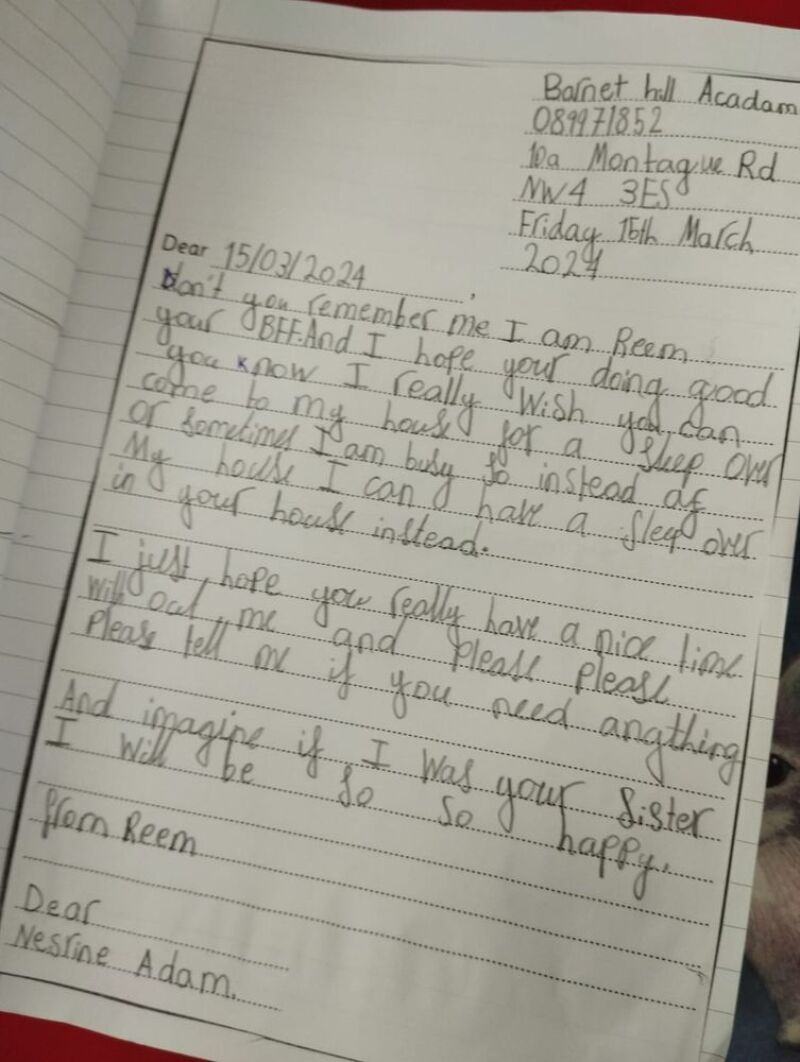 Barnet hill Acadam
089971852
10a Montague Rd
NW4 3ES
Friday 15th March
2024
Dear 15/03/2024,
Don't you remember me I am Reem
your BFF. And I hope your doing good
you know I really wish you can
come to my house for a sleep over
or sometimes I am busy so instead of
My house I can have a sleep over
in your house instead.
I just hope you really have a nice time
with out me and please please
please tell me if you need angthing
And imagine if I was your sister
I will be so so happy.
from Reem
Dear
Nesrine Adam.